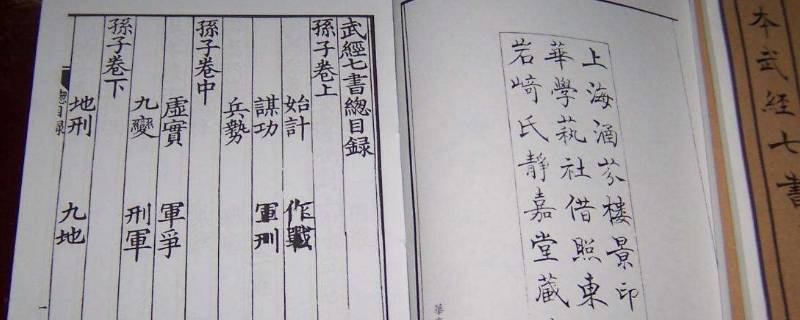 本武經七書
上海涵芬樓景印
華學藝社借照東
岩崎氏靜嘉堂藏
華
武經七書總目録
孫子卷上
始計 作戰
謀功 軍刑
兵勢
孫子卷中
虛實 軍爭
九變 刑軍
孫子卷下
地刑 九地
總目録
一